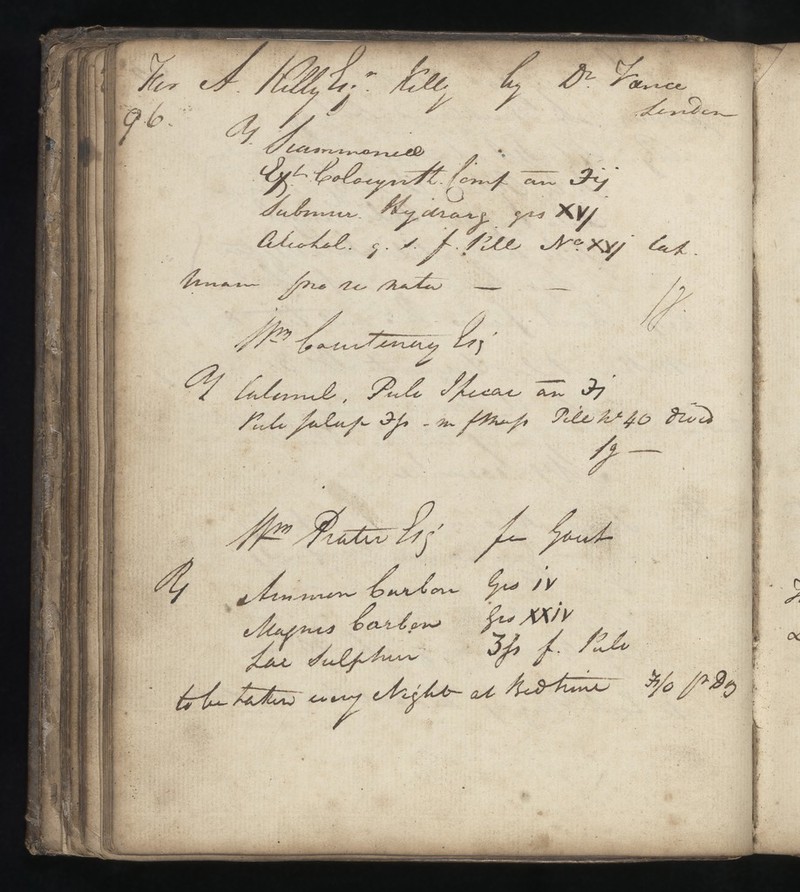 For A. Kelly Esqr. Kelly by Dr. Vance
London
96.
℞ Scammoniæ
Ext. Colocynth. Comp an ʒij
Submur. Hydrarg grs XVj
Alcohol. q. s. f. Pill No. XVj Cap.
Unam pro re nata — —
Wm Courtenay Esq
℞ Calomel, Pulv Ipecac an ʒj
Pulv Jalap ʒſs - m f Mass Pill No 40 divid
Wm Prater Esq for Gout
℞ Ammon Carbon Grs iv
Magnes Carbon Grs XXiv
Lac Sulphur ʒſs f. Pulv
to be taken every Night at Bedtime